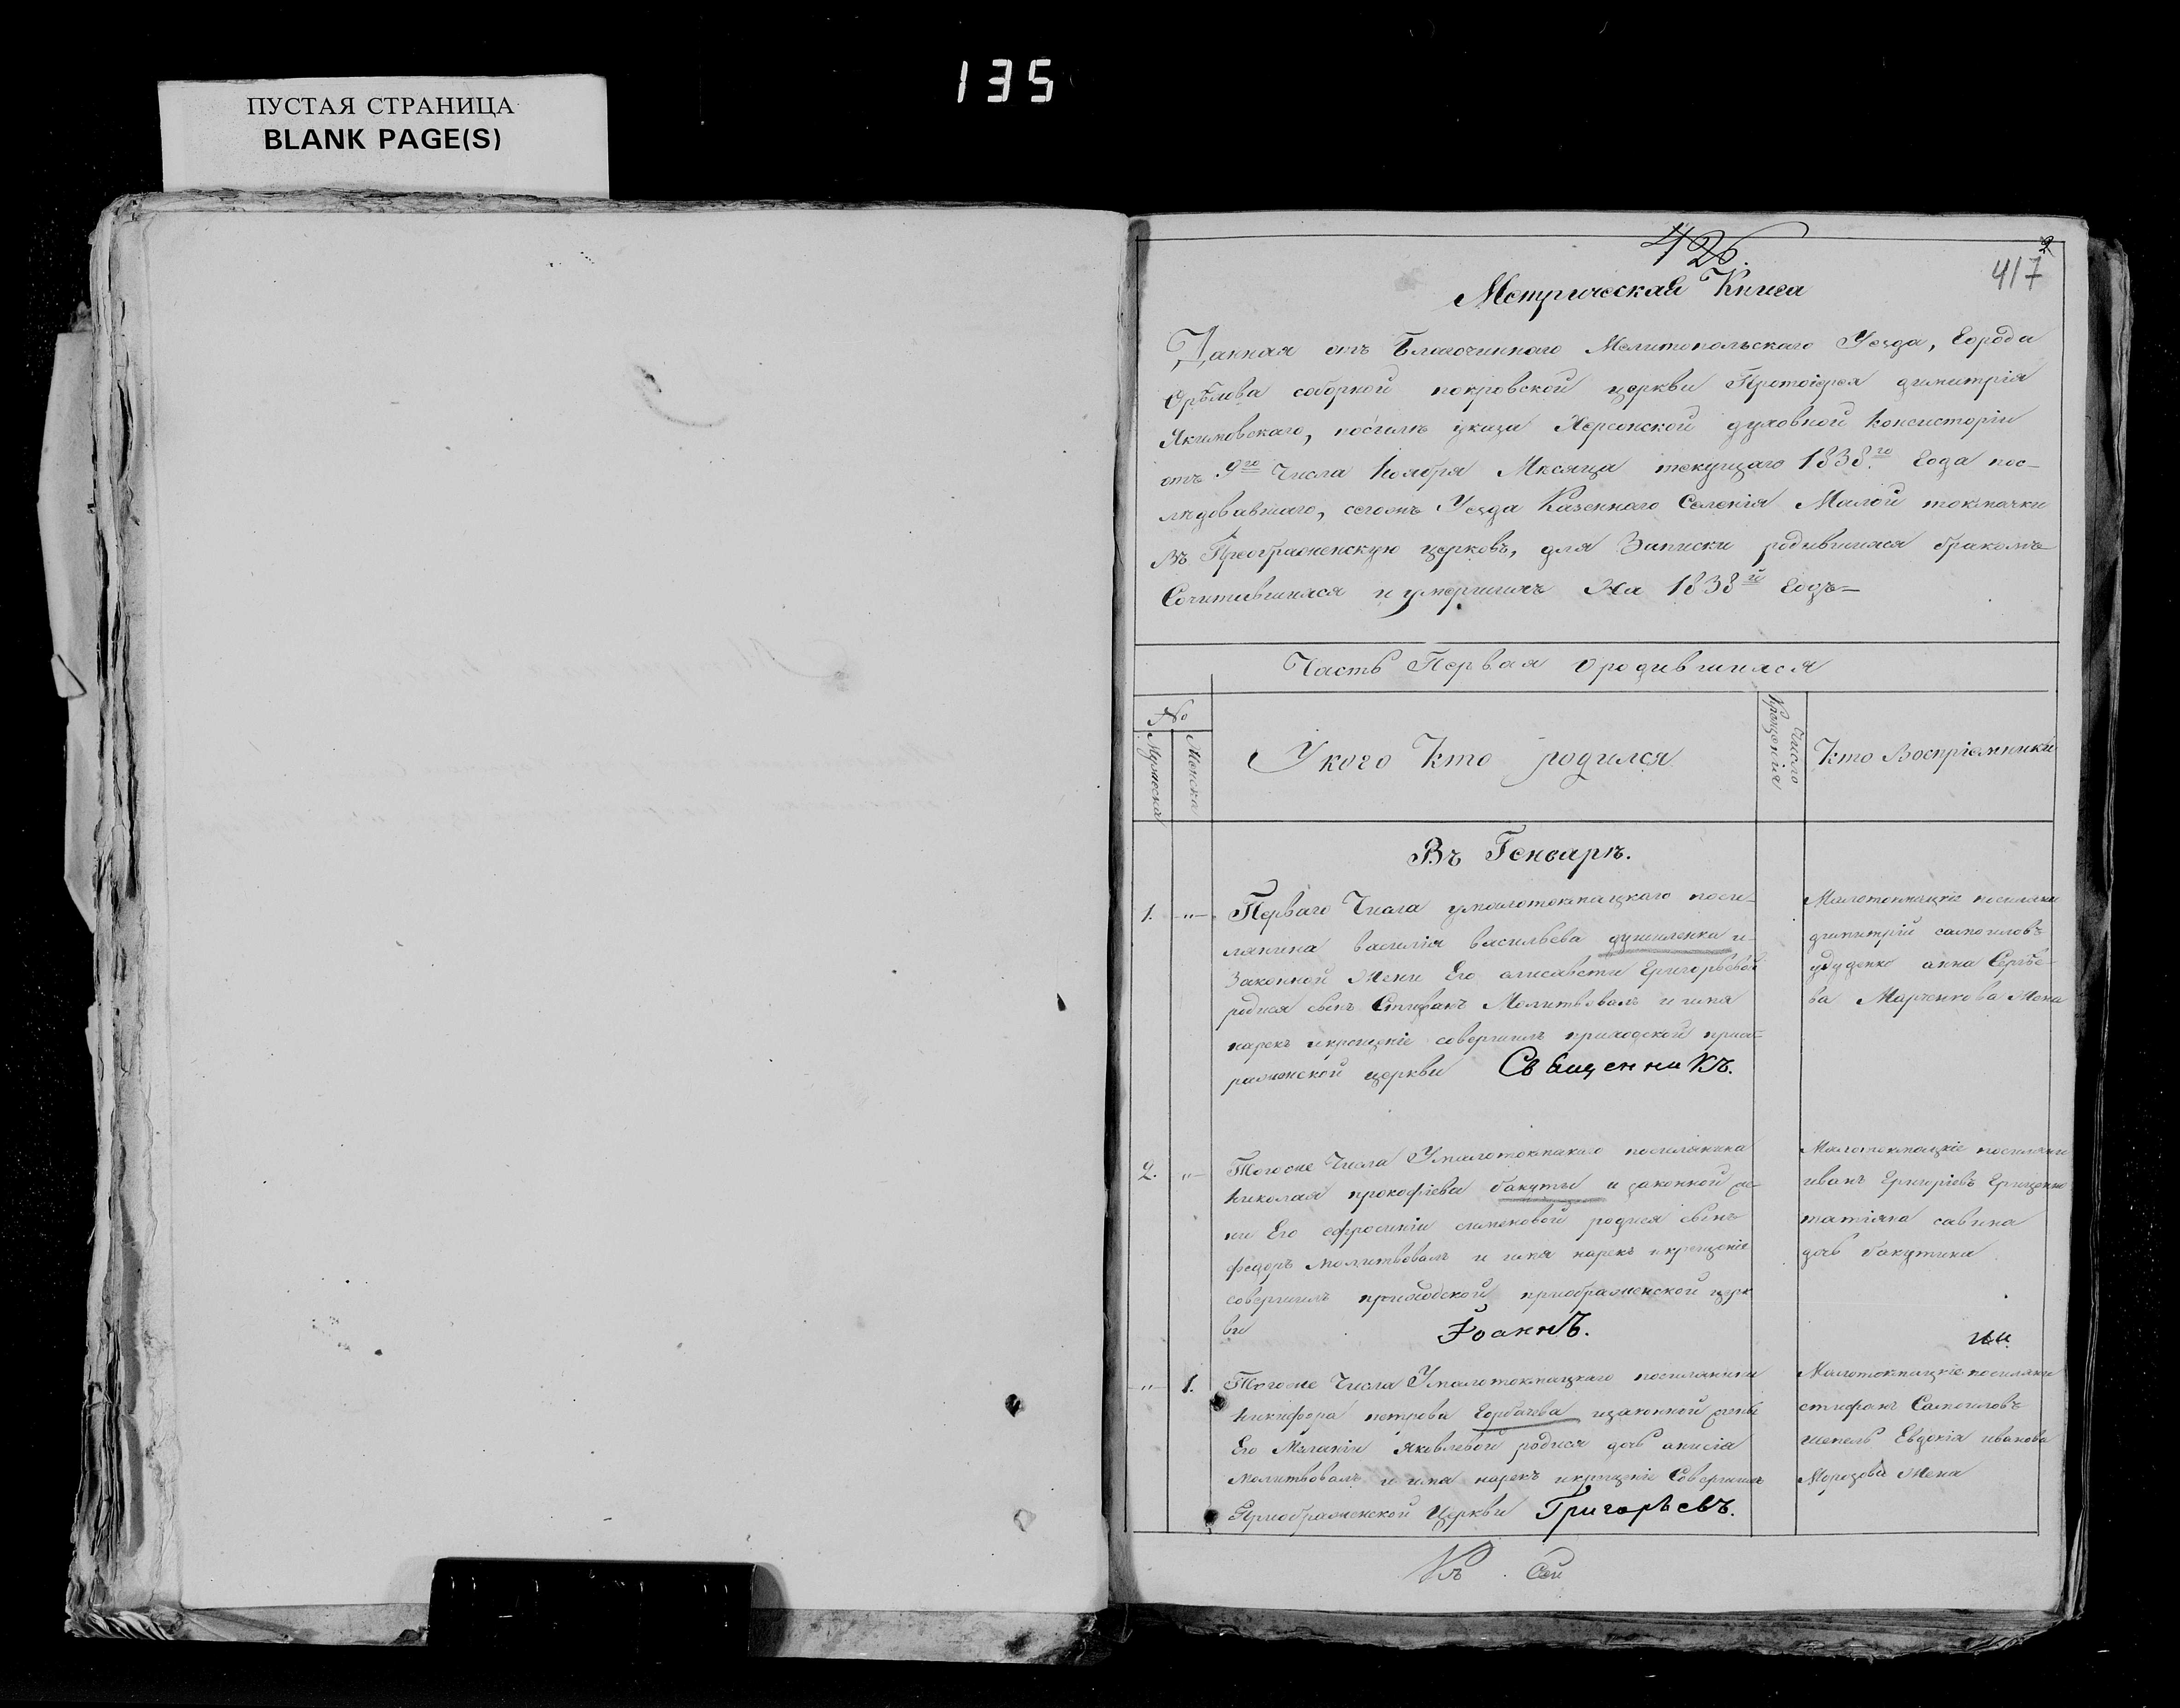 135
ПУСТАЯ СТРАНИЦА
BLANK PAGE(S)
426.
2
417
Метрическая Книга
Данная отъ Благочиннаго Мелитопольскаго Уезда, Города
Орѣхова соборной покровской церкви Протоіерея димитрія
Якимовскаго, посилѣ указа Херсонской духовной консисторіи
отъ 9го Числа Ноября Мѣсяца текущаго 1838.го Года пос-
лѣдовавшаго, сегожъ Уезда Казеннаго Селенія Малой токмачки
Въ Преображенскую церковъ, для Записки родившихся бракомъ
Сочитавшихся и умершихъ На 1838й Годъ=
Часть Первая О родившихся
№
Мужеска
Женска
У кого Кто родился
Число
Крещенія
Кто Воспріемники
Въ Генварѣ.
1. -"- Перваго Числа умалотокмацкаго посе-
лянина василія васильева душиленка и-
Законной Жены Его елисаветы Григорьевой
родися сынъ Стефанъ Молитвовалъ и имя
нарекъ икрещеніе совершилъ приходской прео-
раженской церкви Священникъ.
Малотокмацкіе поселяне
димитрій самоиловъ
дуденко анна Сергѣе-
ва Марченкова Жена
2. "- Тогоже Числа Умалотокмакаго поселянина
Николая прокофіева бакуты и законной же-
ны Его ефросиніи сименовой родися сынъ
федоръ молитвовалъ и имя нарекъ икрещеніе
совершилъ приходской приображенской церк
ви Іоаннъ.
Малотокмацкіе поселяне
иванъ Григоріевъ Грищенко
татіяна савина
дочь бакутина
-"- 1. Тогоже Числа Умалотокмацкаго поселянина
Никифора петрова Горбачева изаконной жены
Его Меланіи Яковлевой родися дочь анисія
Молитвовалъ и имя нарекъ икрещеніе Совершилъ
Приображенской Церкви Григорьевъ.
Малотокмацкіе поселяне
стефанъ Самоиловъ
шепель Евдокія иванова
Морозова Жена
Къ Сей